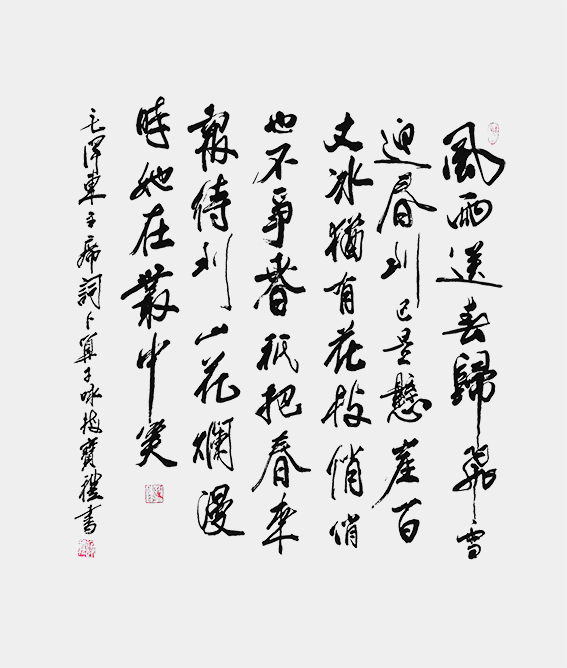 風雨送春歸飛雪
迎春到已是懸崖百
丈冰猶有花枝俏俏
也不爭春祇把春來
報待到山花爛漫
時她在叢中笑
毛澤東主席詞卜算子咏梅寶禮書